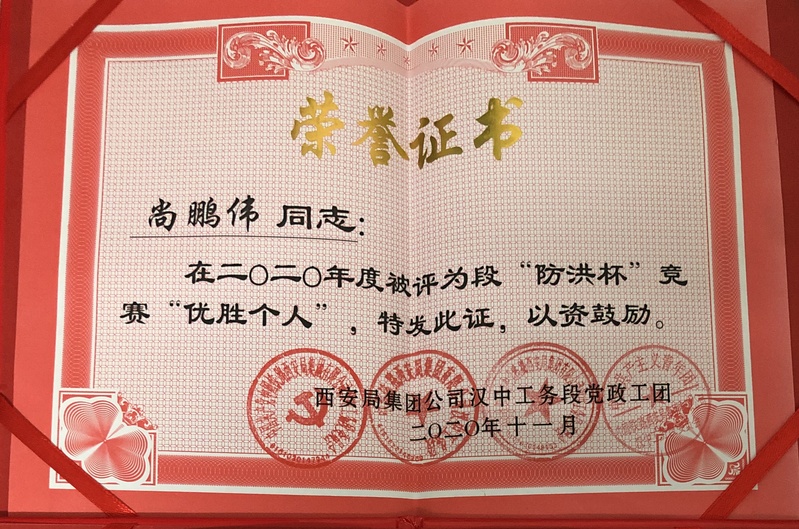 荣誉证书
尚鹏伟 同志：
在二〇二〇年度被评为段“防洪杯”竞
赛“优胜个人”，特发此证，以资鼓励。
西安局集团公司汉中工务段党政工团
二〇二〇年十一月